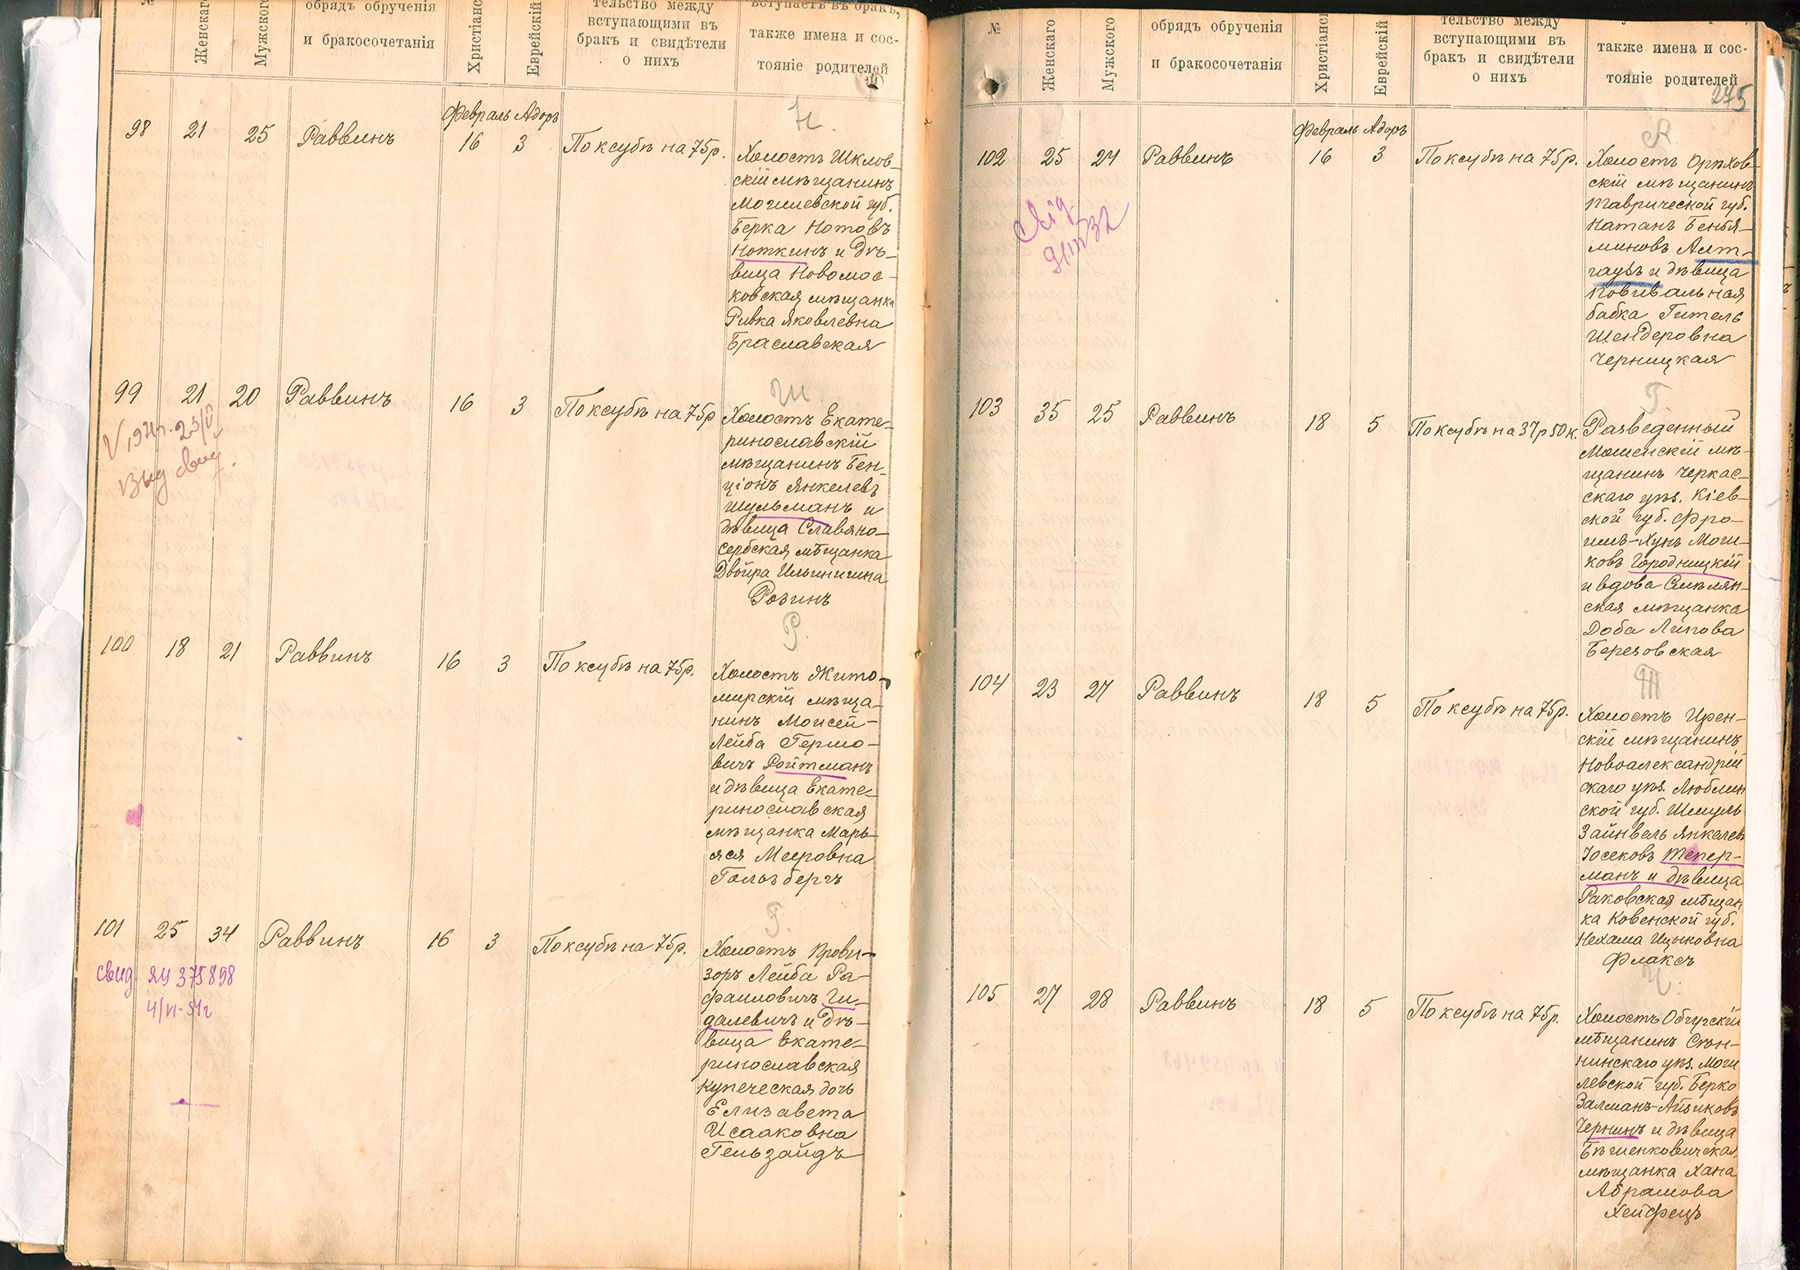 №
Женскаго
Мужского
обрядъ обрученія
и бракосочетанія
Христіанс
Еврейскій
тельство между
вступающими въ
бракъ и свидѣтели
о нихъ
вступаетъ въ бракъ,
также имена и сос-
тояніе родителей
Февраль Адоръ
98 21 25 Раввинъ 16 3 По ксубѣ на 75р.
Н.
Холостъ Шклов-
скій мѣщанинъ
Могилевской губ.
Берка Нотовъ
Ноткинъ и дѣ-
вица Новомос-
ковская мѣщанка
Ривка Яковлевна
Браславская
99 21 20 Раввинъ 16 3 По ксубѣ на 75р
Выд свид.
Ш
Холостъ Екате-
ринославскій
мѣщанинъ Бен-
ціонъ Янкелевъ
Шульманъ и
дѣвица Славяно-
сербская мѣщанка
Двойра Ильинична
Розинъ
100 18 21 Раввинъ 16 3 По ксубѣ на 75р.
Р.
Холостъ Жито-
мирскій мѣща-
нинъ Моисей-
Лейба Гершо-
вичъ Ройтманъ
и дѣвица Екате-
ринославская
мѣщанка Марь-
яся Мееровна
Гольдбергъ
101 25 34 Раввинъ 16 3 По ксубѣ на 75р.
свид. ЯЦ 375898
4/VI-51г
Г.
Холостъ Прови-
зоръ Лейба Ра-
фаиловичъ Ги-
далевичъ и дѣ-
вица Екате-
ринославская
купеческая дочь
Елизавета
Исааковна
Гельзайдъ
№
Женскаго
Мужского
обрядъ обрученія
и бракосочетанія
Христіанск
Еврейскій
тельство между
вступающими въ
бракъ и свидѣтели
о нихъ
также имена и сос-
тояніе родителей
275
Февраль Адоръ
102 25 27 Раввинъ 16 3 По ксубѣ на 75р.
А
Холостъ Орѣхов-
скій мѣщанинъ
Таврической губ.
Натанъ Бенья-
миновъ Альт-
гаузъ и дѣвица
повивальная
бабка Гитель
Шендеровна
Черницкая
103 35 25 Раввинъ 18 5 По ксубѣ на 37р50к.
Г.
Разведенный
Мошенскій мѣ-
щанинъ Черкас-
скаго уѣз. Кіев-
ской губ. Фро-
имъ-Хунъ Мош-
ковъ Городницкій
и вдова Смѣлян-
ская мѣщанка
Доба Липова
Березовская
104 23 27 Раввинъ 18 5 По ксубѣ на 75р.
Т
Холостъ Ирен-
скій мѣщанинъ
Новоалександрій
скаго уѣз. Люблин
ской губ. Шмуль
Зайнвель Янкелевъ
Іосековъ Тепер-
манъ и дѣвица
Раковская мѣщан
ка Ковенской губ.
Нехама Ицковна
Флаксъ
105 27 28 Раввинъ 18 5 По ксубѣ на 75р.
Ч.
Холостъ Обчугскій
мѣщанинъ Сѣн-
нинскаго уѣз. Моги
левской губ. Берко
Залманъ-Айзиковъ
Чернинъ и дѣвица
Бѣшенковичская
мѣщанка Хана
Абрамова
Хейфецъ